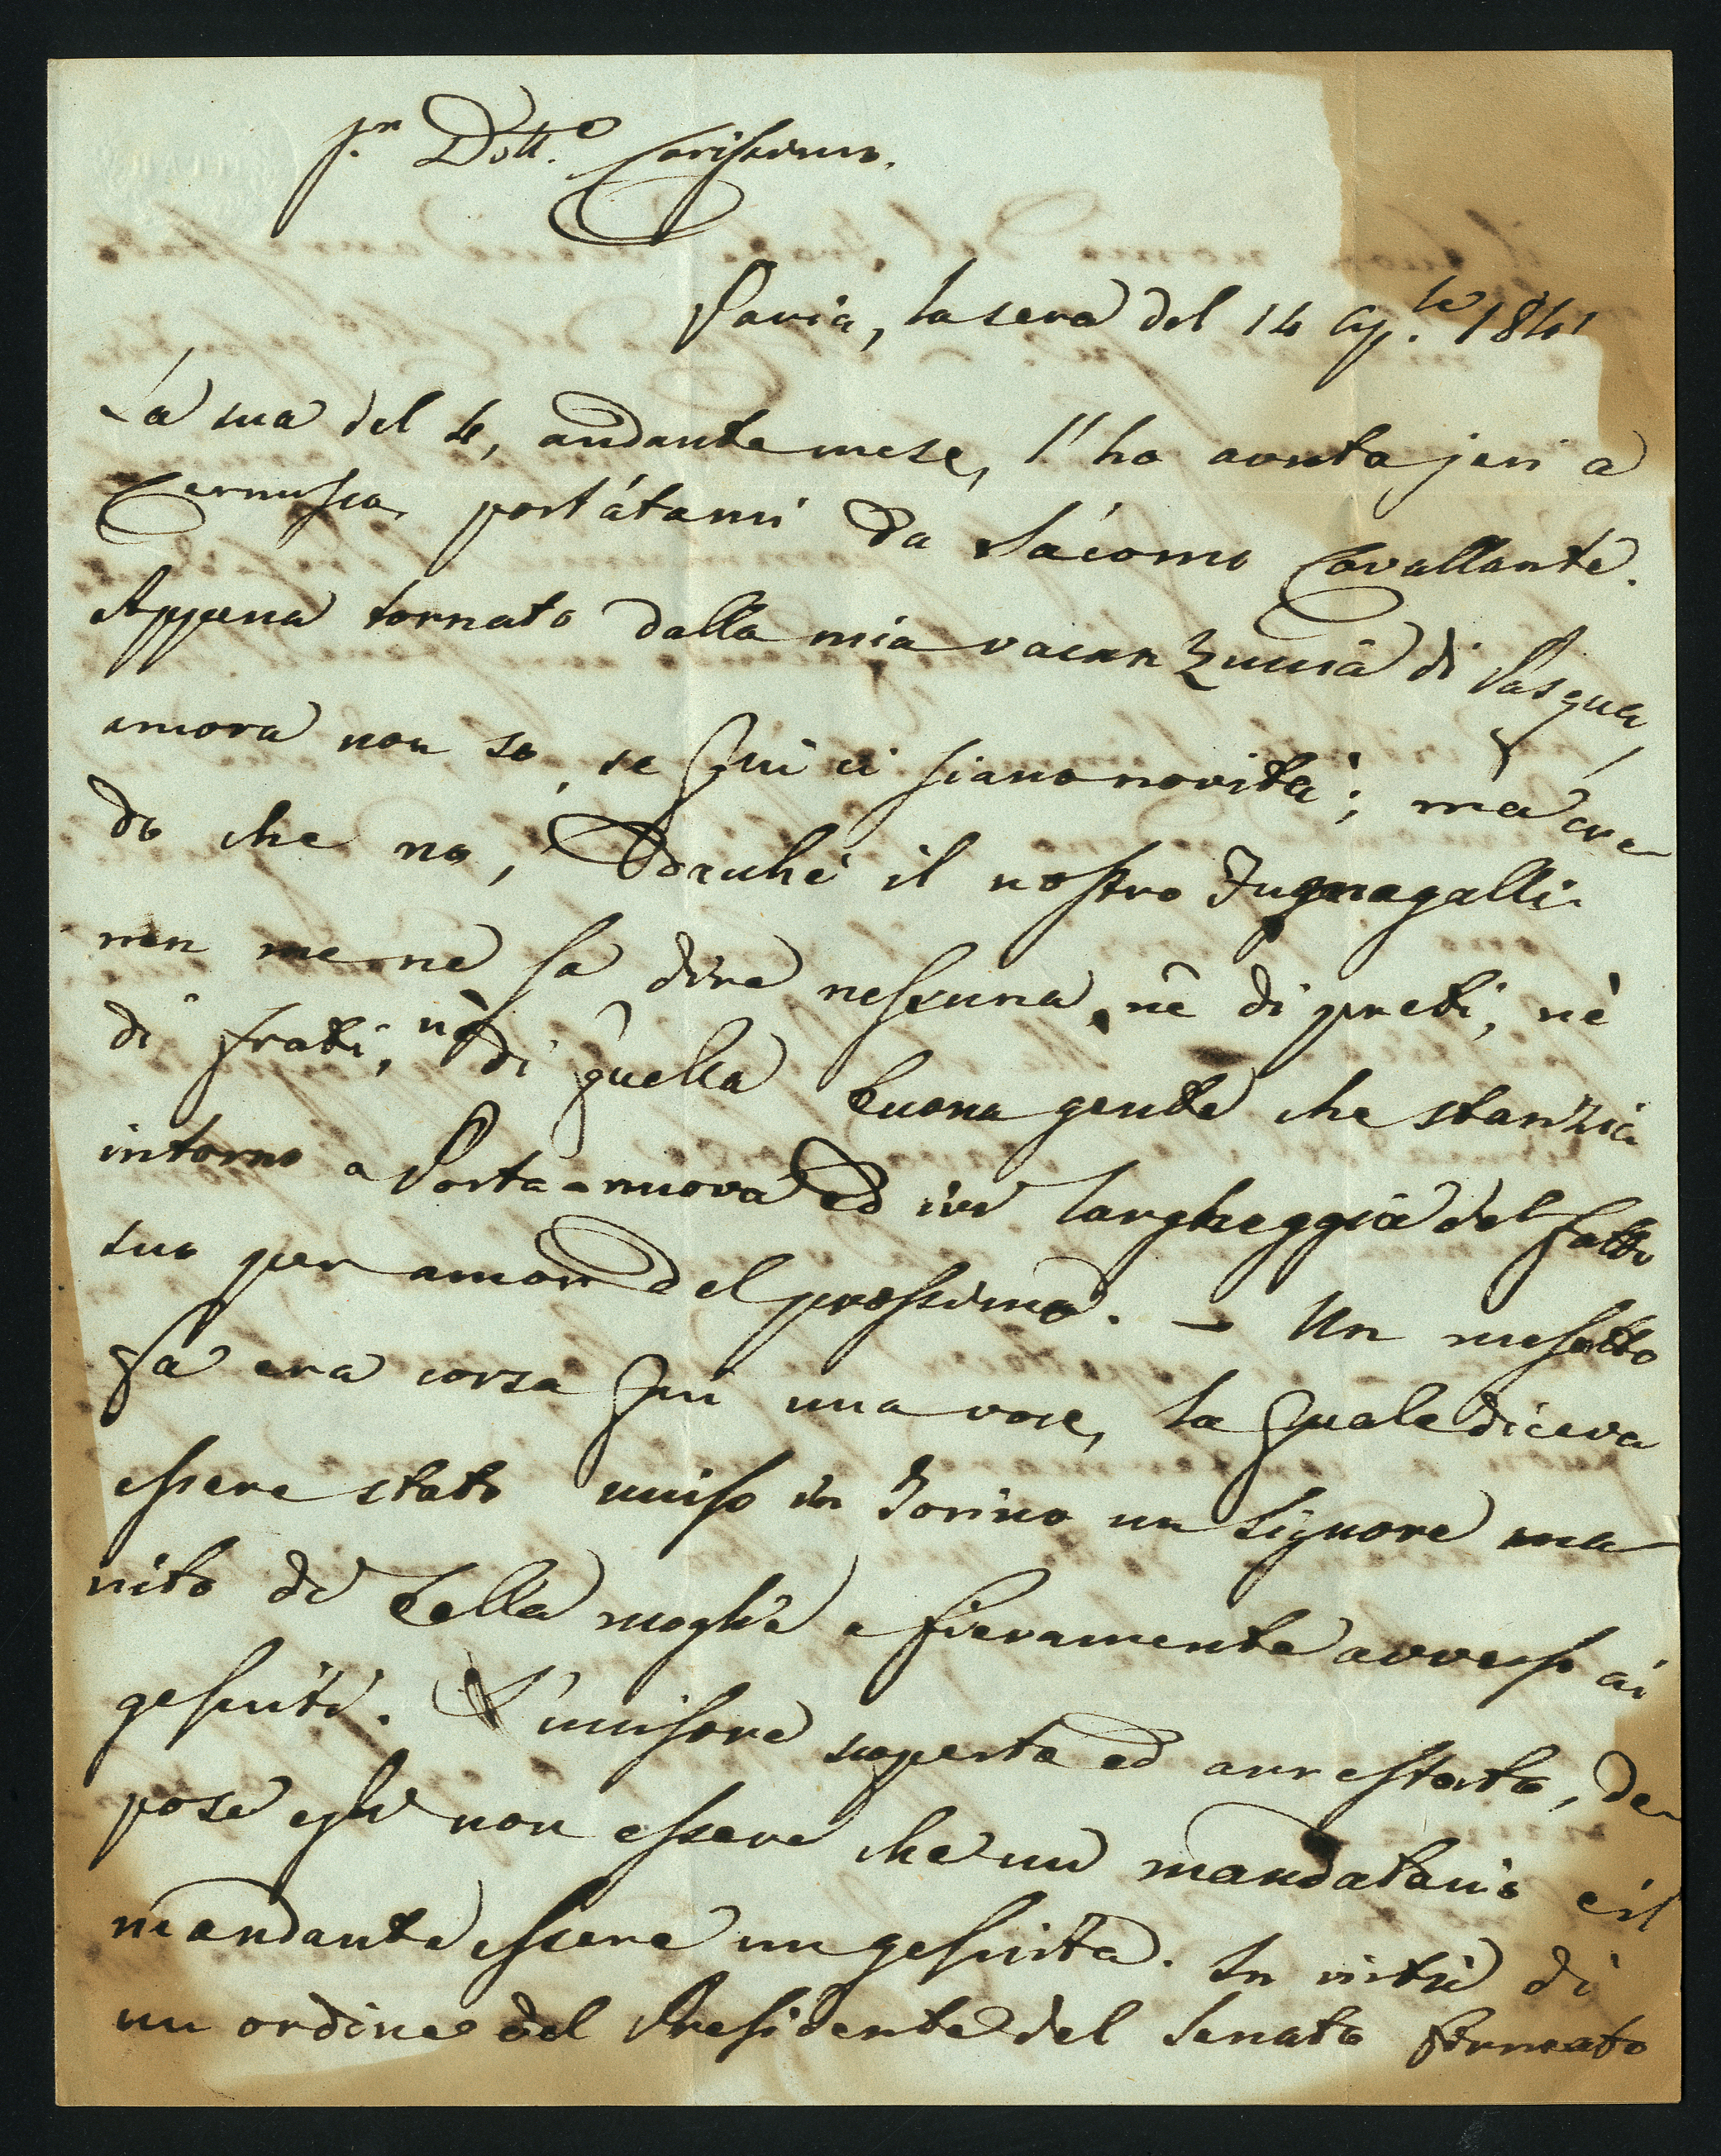 S.r Dott.e Carissimo.
Pavia, la sera del 14 Ap.le 1841
La sua del 4, andante mese, l'ho avuta jeri a
Cernusco, portátami da Giácomo Cavallante.
Appena tornato dalla mia vacanzuccia di Pasqua,
ancora non so, se qui ci siano novità; ma cre-
do che no, dacchè il nostro Fugnagalli
non me ne sa dire nessuna, nè di preti, nè
di frati, nè di quella buona gente che stanzia
intorno a Porta-nuova ed ivi largheggia del fatto
suo per amore del prossimo. — Un mesetto
fa era corsa qui una voce, la quale diceva
essere stato ucciso in Torino un signore ma-
rito di bella moglie e fieramente avverso ai
gesuiti. L'uccisore scoperto ed arrestato, de-
pose esso non essere che un mandatario e il
mandante essere un gesuita. In virtù di
un ordine del Presidente del Senato firmato